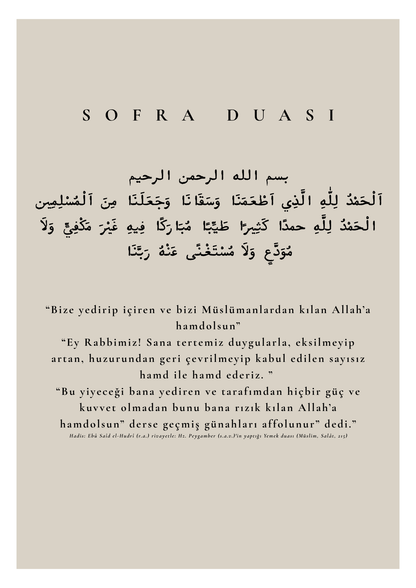 SOFRA DUASI
بسم الله الرحمن الرحيم
اَلْحَمْدُ لِلَّهِ الَّذِي اَطْعَمَنَا وَسَقَانَا وَجَعَلَنَا مِنَ اَلْمُسْلِمِين
الْحَمْدُ لِلَّهِ حمدًا كَثِيرًا طَيِّبًا مُبَارَكًا فِيهِ غَيْرَ مَكْفِيٍّ وَلَا
مُوَدَّعٍ وَلَا مُسْتَغْنًى عَنْهُ رَبَّنَا
“Bize yedirip içiren ve bizi Müslümanlardan kılan Allah’a
hamdolsun”
“Ey Rabbimiz! Sana tertemiz duygularla, eksilmeyip
artan, huzurundan geri çevrilmeyip kabul edilen sayısız
hamd ile hamd ederiz. ”
“Bu yiyeceği bana yediren ve tarafımdan hiçbir güç ve
kuvvet olmadan bunu bana rızık kılan Allah’a
hamdolsun” derse geçmiş günahları affolunur” dedi.”
Hadis: Ebû Saîd el-Hudrî (r.a.) rivayetle: Hz. Peygamber (s.a.v.)'in yaptığı Yemek duası (Müslim, Salât, 205)